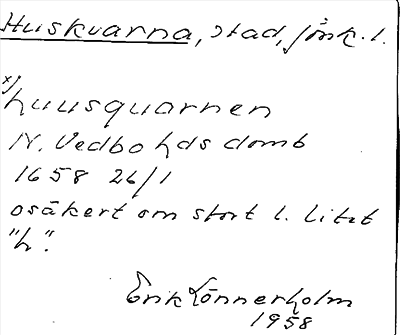 Huskvarna, stad, Jönk. l.
x) huusquarnen
N. Vedbo hds domb
1658 26/1
osäkert om stort l. litet
"h".
Erik Lönnerholm
1958